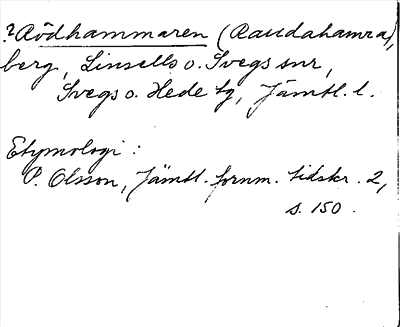 ?Rödhammaren (Raudahamra),
berg, Linsells o. Svegs snr,
Svegs o. Hede tg, Jämtl. l.
Etymologi:
P. Olsson, Jämtl. fornm. tidskr. 2,
s. 150.